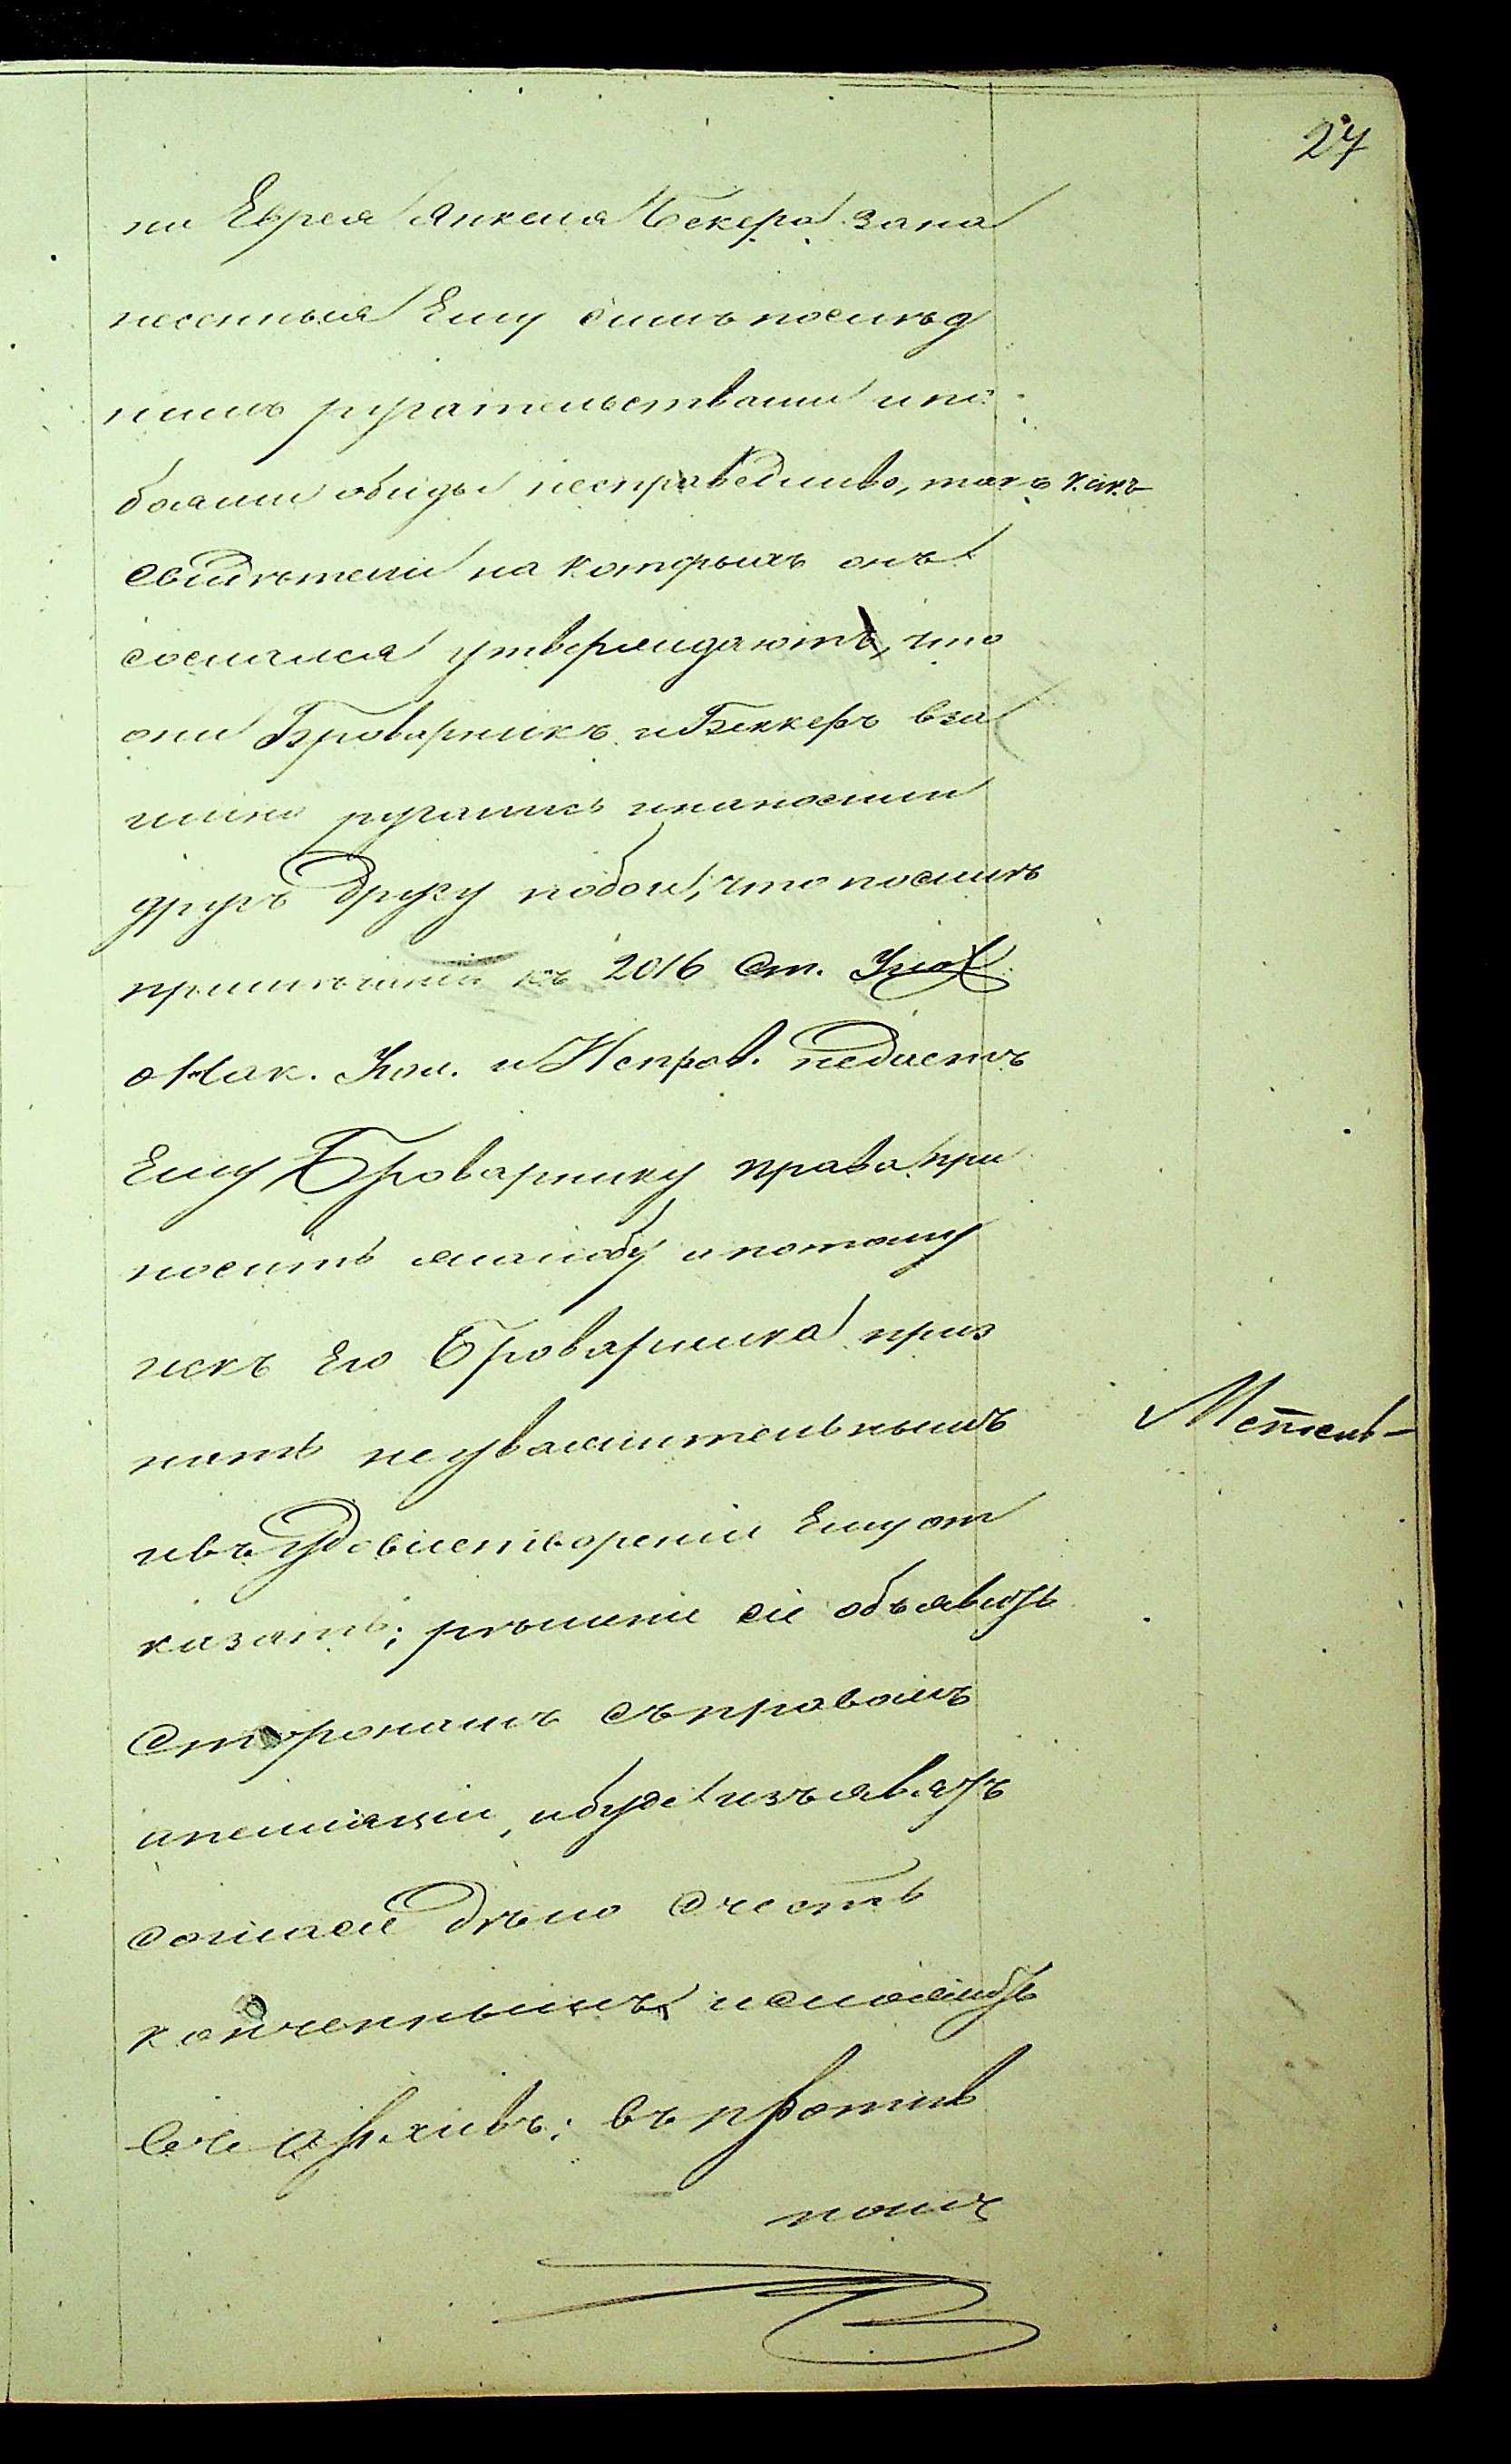 27
на Еврея Янкеля Бекера зана
несенныя Ему симъ послѣд
нимъ ругательствами и по
боями обиды несправедливо, такъ какъ
свидѣтели на которыхъ онъ
сослался утверждаютъ, что
они Броварникъ и Беккеръ вза
имно ругались и наносили
другъ другу побои, что по силѣ
примѣчанія къ 2016 Ст. Улож
о Нак. Угол. и Исправ. недаетъ
Ему Броварнику права при
носить жалобу и потому
искъ Его Броварника приз
нать неуважительнымъ
и въ удовлетвореніи Ему от
казать; рѣшеніе сіе объявить
сторонамъ съ правомъ
апелляціи, и буде изъявятъ
согласіе дѣло счесть
конченнымъ и сложить
въ архивъ; въ против
номъ